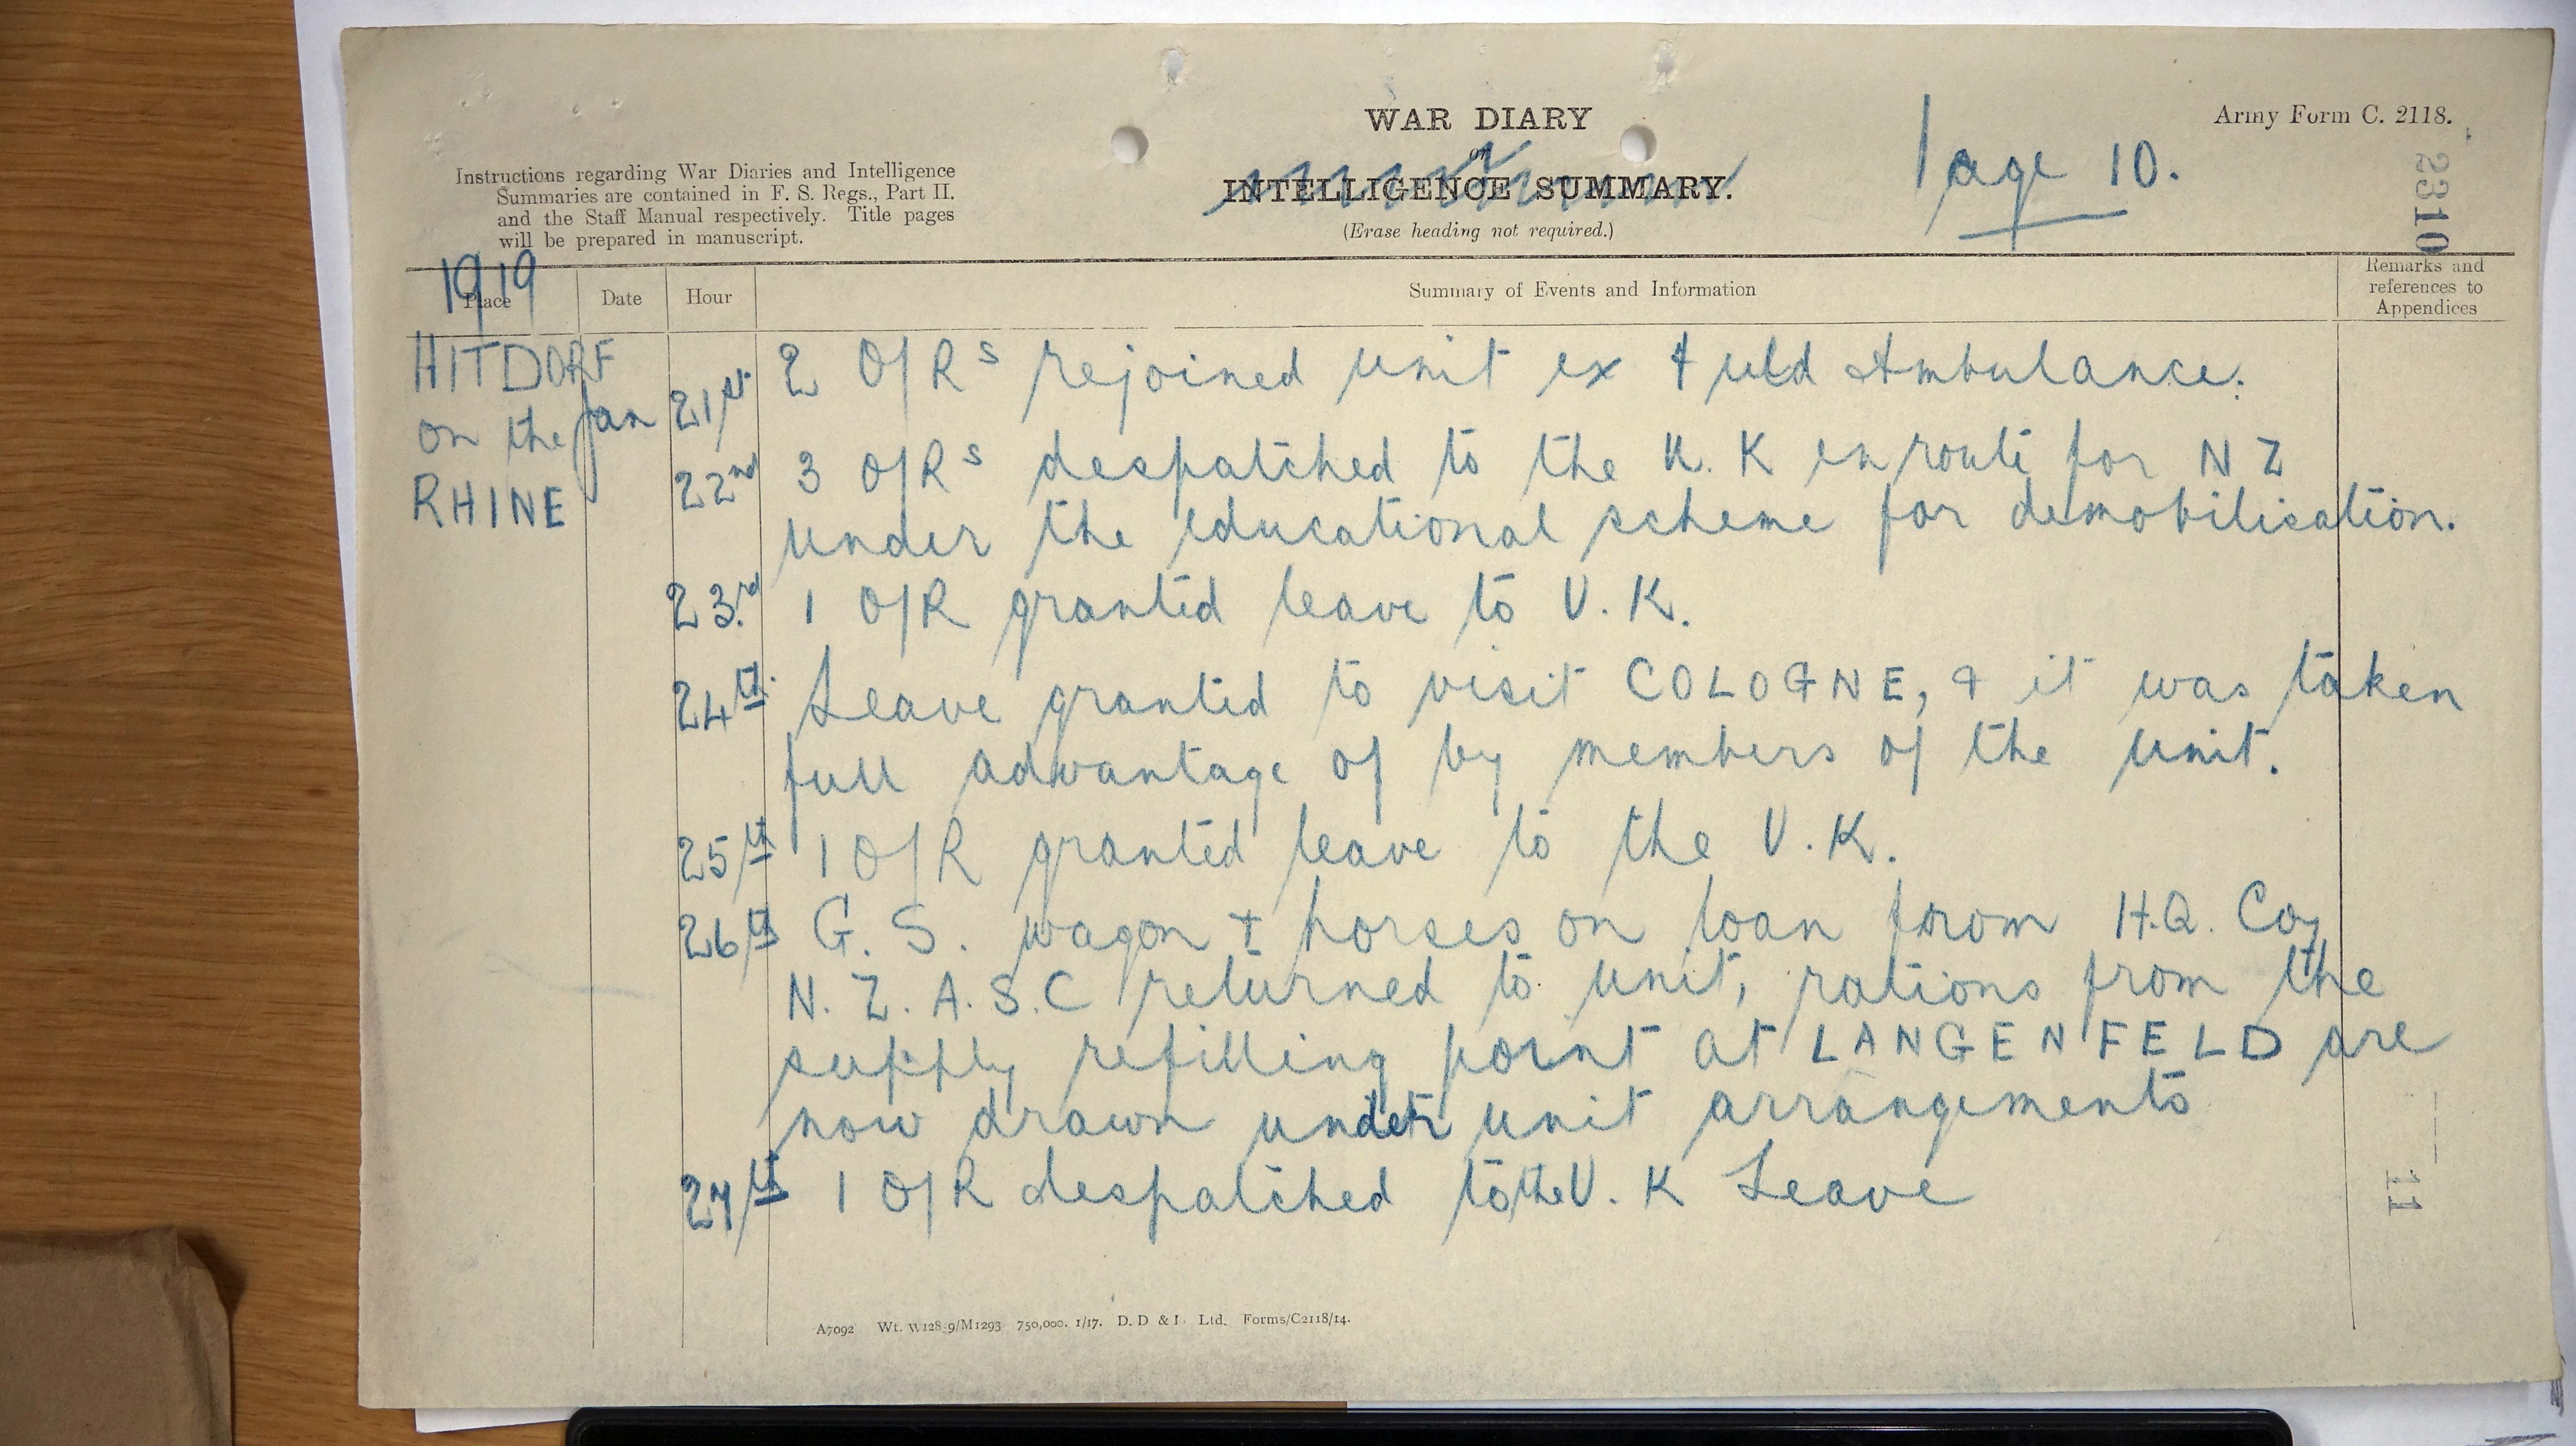 WAR DIARY
or
INTELLIGENCE SUMMARY.
(Erase heading not required.)
Army Form C. 2118.
Page 10.
2310
Instructions regarding War Diaries and Intelligence
Summaries are contained in F. S. Regs., Part II.
and the Staff Manual respectively. Title pages
will be prepared in manuscript.
1919
Place Date Hour Summary of Events and Information
Remarks and
references to
Appendices
HITDORF
on the
RHINE
Jan 21st 2 O/Rs rejoined unit ex Field Ambulance.
22nd 3 O/Rs despatched to the U.K enroute for NZ
under the educational scheme for demobilisation.
23rd. 1 O/R granted leave to U.K.
24th. Leave granted to visit COLOGNE, & it was taken
full advantage of by members of the unit.
25th 1 O/R granted leave to the U.K.
26th G.S. wagon & horses on loan from H.Q. Coy
N.Z.A.S.C returned to unit, rations from the
supply refilling point at LANGENFELD are
now drawn under unit arrangements
27th 1 O/R despatched to the U.K Leave
11
A7092 Wt. W128.9/M1293 750,000. 1/17. D. D & L Ltd. Forms/C2118/14.